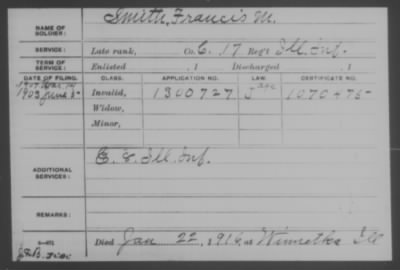 NAME OF SOLDIER: Smith, Francis M.
SERVICE: Late rank, Co. C. 17 Reg't Ill. Inf.
TERM OF SERVICE: Enlisted , 1 Discharged , 1
DATE OF FILING. CLASS. APPLICATION NO. LAW. CERTIFICATE NO.
1903 June 5 Invalid, 1300727 1070475
Widow,
Minor,
ADDITIONAL SERVICES: Ill. Inf.
REMARKS:
Died Jan 22, 1916, at Winnetka Ill